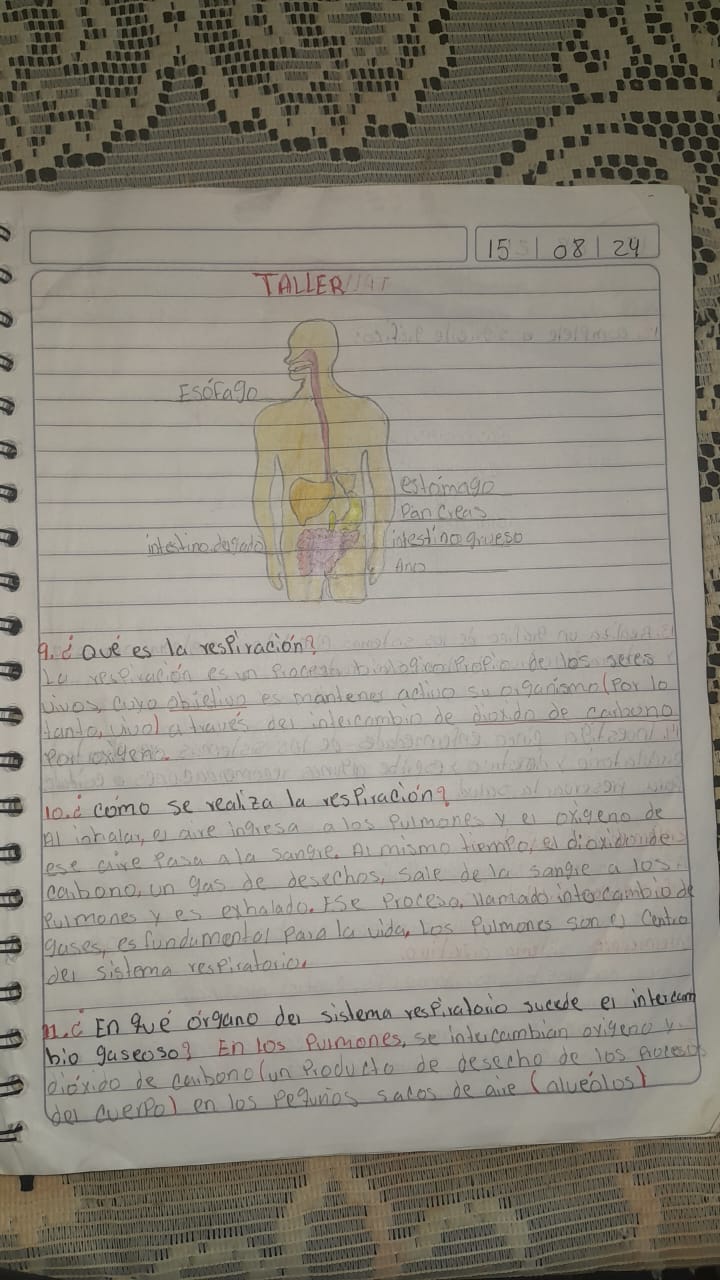 15 | 08 | 24
TALLER
Esófago
estómago
Pancreas
intestino delgado
intestino grueso
Ano
9. ¿Qué es la respiración?
La respiración es un Proceso biologico Propio de los seres
vivos, cuyo objetivo es mantener activo su organismo (Por lo
tanto, vivo) a través del intercambio de dioxido de carbono
Por oxigeno.
10. ¿cómo se realiza la respiración?
Al inhalar, el aire ingresa a los Pulmones y el oxigeno de
ese aire Pasa a la sangre. Al mismo tiempo, el dioxido de
carbono, un gas de desechos, sale de la sangre a los
Pulmones y es exhalado. Ese Proceso, llamado intercambio de
gases, es fundamental Para la vida, Los Pulmones son el Centro
del sistema respiratorio.
11. ¿En qué órgano del sistema respiratorio sucede el intercam
bio gaseoso? En los Pulmones, se intercambian oxigeno y
dióxido de carbono (un Producto de desecho de los Procesos
del cuerpo) en los Pequños sacos de aire (alveólos)